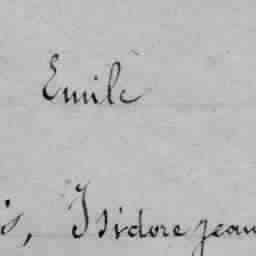 Emile
is, Isidore jean